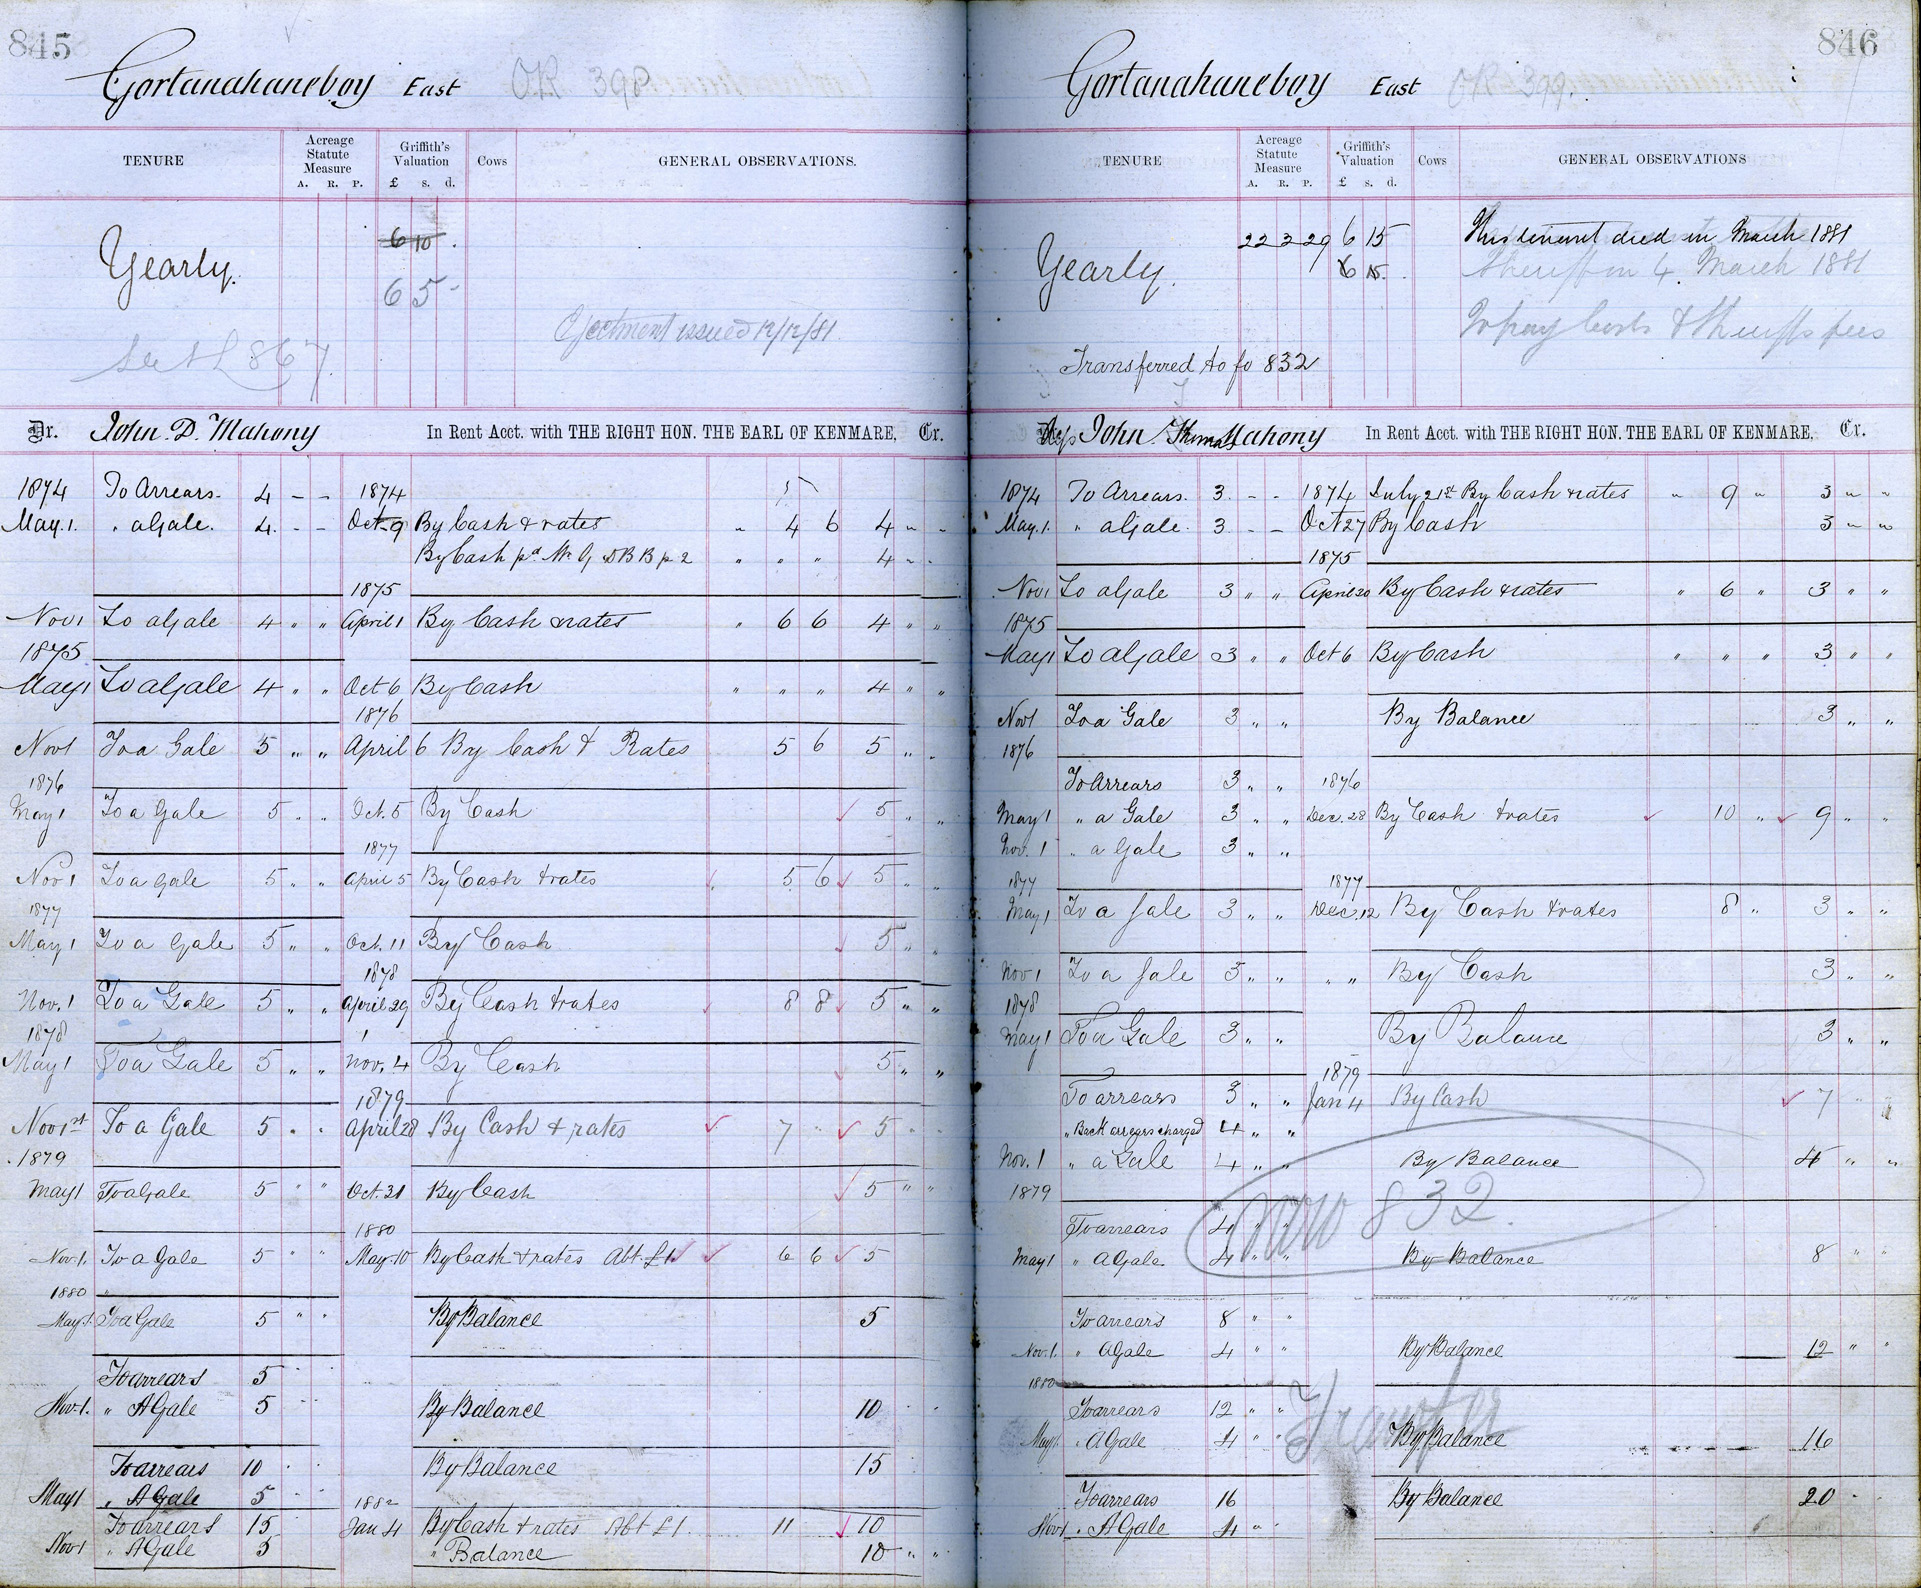 845
Gortanahaneboy East OR 398
TENURE
Acreage Statute Measure
A. R. P.
Griffith's Valuation
£ s. d.
Cows
GENERAL OBSERVATIONS.
Yearly.
6 10
6 5 -
Ejectment issued 12/12/81
867
Dr. John D. Mahony In Rent Acct. with THE RIGHT HON. THE EARL OF KENMARE, Cr.
1874 To Arrears. 4 - - 1874
May. 1. " a Gale. 4. - - Oct. 9 By Cash & rates " 4 6 4 " "
By Cash pd Mr G DBB p 2 " " " 4 " "
1875
Nov 1 To a Gale 4 " " April 1 By Cash & rates " 6 6 4 " "
1875
May 1 To a Gale 4 " " Oct 6 By Cash " " " 4 " "
1876
Nov 1 To a Gale 5 " " April 6 By Cash & Rates 5 6 5 " "
1876
May 1 To a Gale 5 " " Oct. 5 By Cash 5 " "
1877
Nov 1 To a Gale 5 " " April 5 By Cash & rates 5 6 5 " "
1877
May 1 To a Gale 5 " " Oct. 11 By Cash 5 " "
1878
Nov. 1 To a Gale 5 " " April 29 By Cash & rates 8 8 5 " "
1878
May 1 To a Gale 5 " " Nov. 4 By Cash 5 " "
1879
Nov 1st To a Gale 5 " " April 28 By Cash & rates 7 " 5 " "
1879
May 1 To a Gale 5 " " Oct. 31 By Cash 5 " "
1880
Nov. 1. To a Gale 5 " " May. 10 By Cash & rates Abt. £1. 6 6 5
1880
May 1. To a Gale 5 " " By Balance 5
To arrears 5
Nov. 1. " A Gale 5 By Balance 10
To arrears 10 By Balance 15
May 1 " A Gale 5 1882
To arrears 15 Jan 4 By Cash & rates Abt £1. 11 10
Nov 1 " A Gale 5 " Balance 10 " "
846
Gortanahaneboy East OR 399.
TENURE
Acreage Statute Measure
A. R. P.
Griffith's Valuation
£ s. d.
Cows
GENERAL OBSERVATIONS
Yearly.
22 3 29 6 15
6 15
This tenant died in March 1881
4 March 1881
To pay Costs & Sheriffs fees
Transferred to fo 832
Dr. Reps John Thomas Mahony In Rent Acct. with THE RIGHT HON. THE EARL OF KENMARE, Cr.
1874 To Arrears. 3. - - 1874 July 21st By Cash & rates " 9 " 3 " "
May. 1. " a Gale. 3. - - Oct 27 By Cash 3 " "
1875
Nov 1 To a Gale 3 " " April 20 By Cash & rates " 6 " 3 " "
1875
May 1 To a Gale 3 " " Oct 6 By Cash " " " 3 " "
Nov 1 To a Gale 3 " " By Balance 3 " "
1876
To Arrears 3 " " 1876
May 1 " a Gale 3 " " Dec. 28 By Cash & rates 10 " 9 " "
Nov. 1 " a Gale 3 " "
1877 1877
May 1 To a Gale 3 " " Dec. 12 By Cash & rates 8 " 3 " "
Nov 1 To a Gale 3 " " " " By Cash 3 " "
1878
May 1 To a Gale 3 " " By Balance 3 " "
1879
To arrears 3 " " Jan 4 By Cash 7 " "
" Back arrears charged 4 " "
Nov. 1 " a Gale 4 " " By Balance 4 " "
1879
now 832
To arrears 4 " "
May 1 " A Gale 4 " " By Balance 8 " "
To arrears 8 " "
Nov. 1. " A Gale 4 " " By Balance 12 " "
1880
To arrears 12 " "
Transfer
May 1. " A Gale 4 " " By Balance 16
To arrears 16 By Balance 20
Nov 1 " A Gale 4 " "